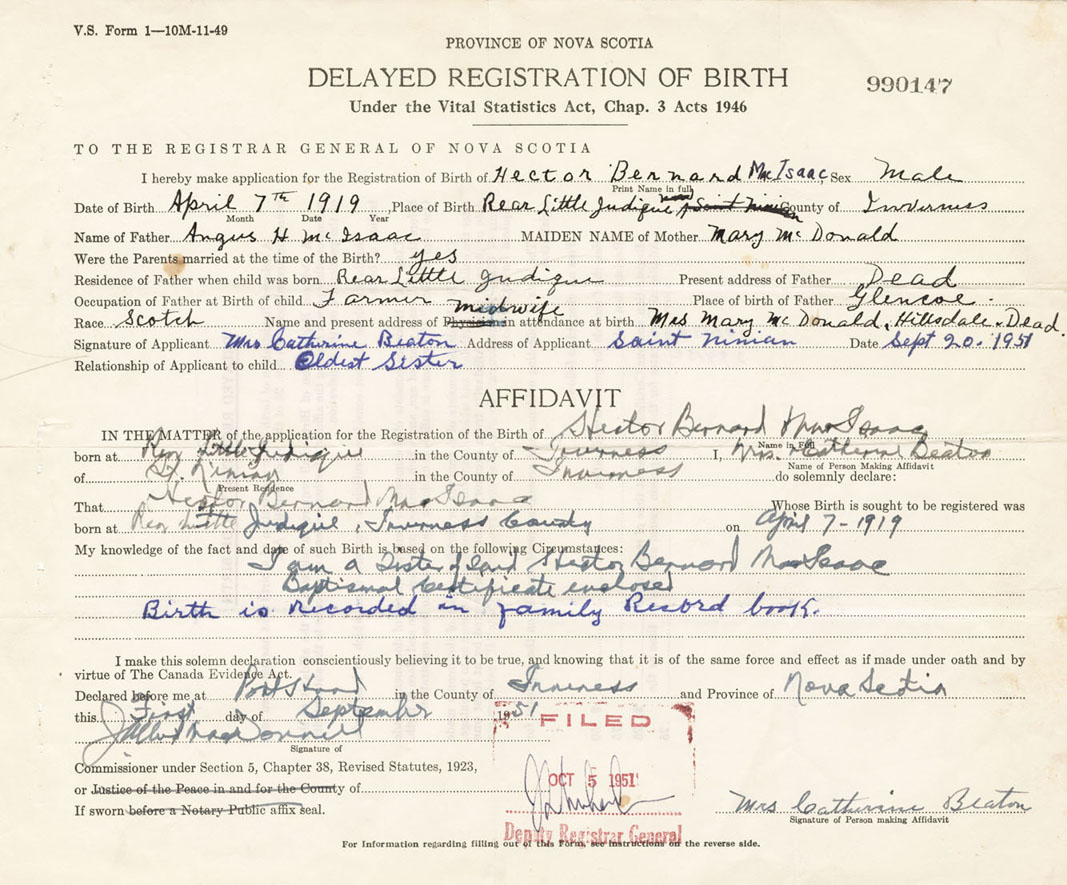 V.S. Form 1—10M-11-49
PROVINCE OF NOVA SCOTIA
DELAYED REGISTRATION OF BIRTH
990147
Under the Vital Statistics Act, Chap. 3 Acts 1946
TO THE REGISTRAR GENERAL OF NOVA SCOTIA
I hereby make application for the Registration of Birth of Hector Bernard MacIsaac, Sex Male
Print Name in full
Date of Birth April 7th 1919, Place of Birth Rear Little Judique County of Inverness
Month Date Year
Name of Father Angus H McIsaac MAIDEN NAME of Mother Mary McDonald
Were the Parents married at the time of the Birth? yes
Residence of Father when child was born Rear Little Judique Present address of Father Dead
Occupation of Father at Birth of child Farmer Place of birth of Father Glencoe.
midwife
Race Scotch Name and present address of Physician in attendance at birth Mrs Mary McDonald, Hillsdale. Dead.
Signature of Applicant Mrs Catherine Beaton Address of Applicant Saint Ninian Date Sept 20. 1951
Relationship of Applicant to child Oldest Sister
AFFIDAVIT
IN THE MATTER of the application for the Registration of Birth of Hector Bernard MacIsaac
Name in Full
born at Rear Little Judique in the County of Inverness I, Mrs. Catherine Beaton
Name of Person Making Affidavit
of St. Ninian in the County of Inverness do solemnly declare:
Present Residence
That Hector Bernard MacIsaac Whose Birth is sought to be registered was
born at Rear Little Judique, Inverness County on April 7-1919
My knowledge of the fact and date of such Birth is based on the following Circumstances:
I am a Sister of said Hector Bernard MacIsaac
Baptismal Certificate enclosed
Birth is recorded in family Record book.
I make this solemn declaration conscientiously believing it to be true, and knowing that it is of the same force and effect as if made under oath and by
virtue of The Canada Evidence Act.
Declared before me at Port Hood in the County of Inverness and Province of Nova Scotia
this First day of September 1951
Signature of
FILED
OCT 5 1951
Deputy Registrar General
Commissioner under Section 5, Chapter 38, Revised Statutes, 1923,
or Justice of the Peace in and for the County of
If sworn before a Notary Public affix seal.
Mrs Catherine Beaton
Signature of Person making Affidavit
For Information regarding filling out of this Form, see instructions on the reverse side.